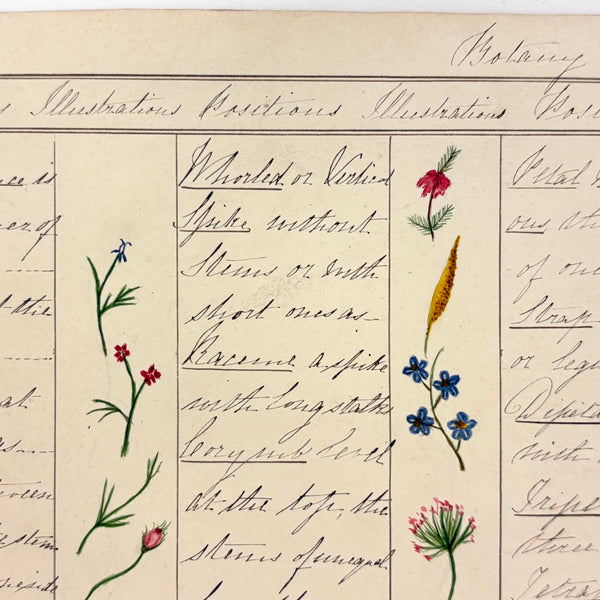 Botany
s Illustrations Positions Illustrations Posi
nce is
nez of
at the
at
s
ween
stem
Whorled or Vertical
Spike without
Stems or with
short ones as
Raceme a spike
with long stalks
Corymb Level
at the top, the
stems of unequal
Petal
ous th
of on
Strap
or legu
Dipetal
with
Tripet
three
Tetrap